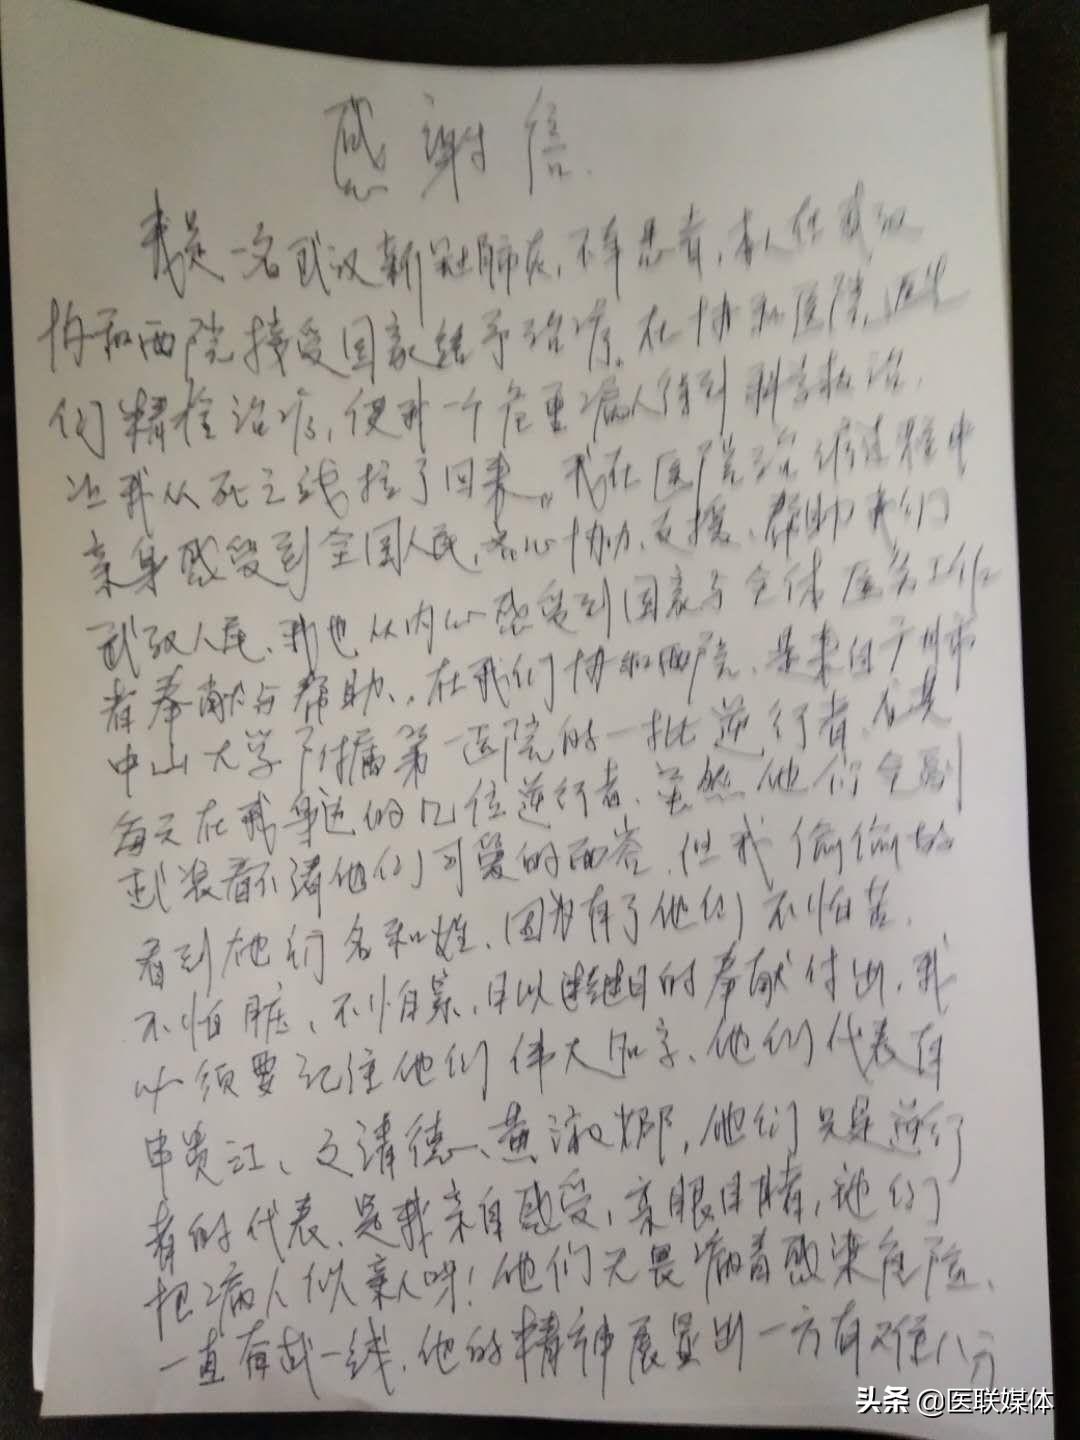 感谢信
我是一名武汉新冠肺炎,不幸患者,本人在武汉
协和西院接受国家给予治疗。在协和医院,医生
们精检治疗,使我一个危重病人得到科学救治,
让我从死亡线拉了回来。我在医院治疗过程中
亲身感受到全国人民,齐心协力,支援、帮助我们
武汉人民、我也从内心感受到国家与全体医务工作
者奉献与帮助、在我们协和西院、是来自广州市
中山大学附属第一医院的一批逆行者、尤其
每天在我身边的几位逆行者、虽然他们全副
武装看不清他们可爱的面容、但我偷偷地
看到他们名和姓、因为有了他们不怕苦、
不怕脏、不怕累、日以继日的奉献付出、我
必须要记住他们伟大名字、他们代表有
申贵江、文清德、黄淑娜,他们只是逆行
者的代表、是我亲自感受,亲眼目睹,他们
把病人似亲人呀!他们无畏病毒感染危险、
一直有战一线、他的精神展显出一方有难八方
头条@医联媒体